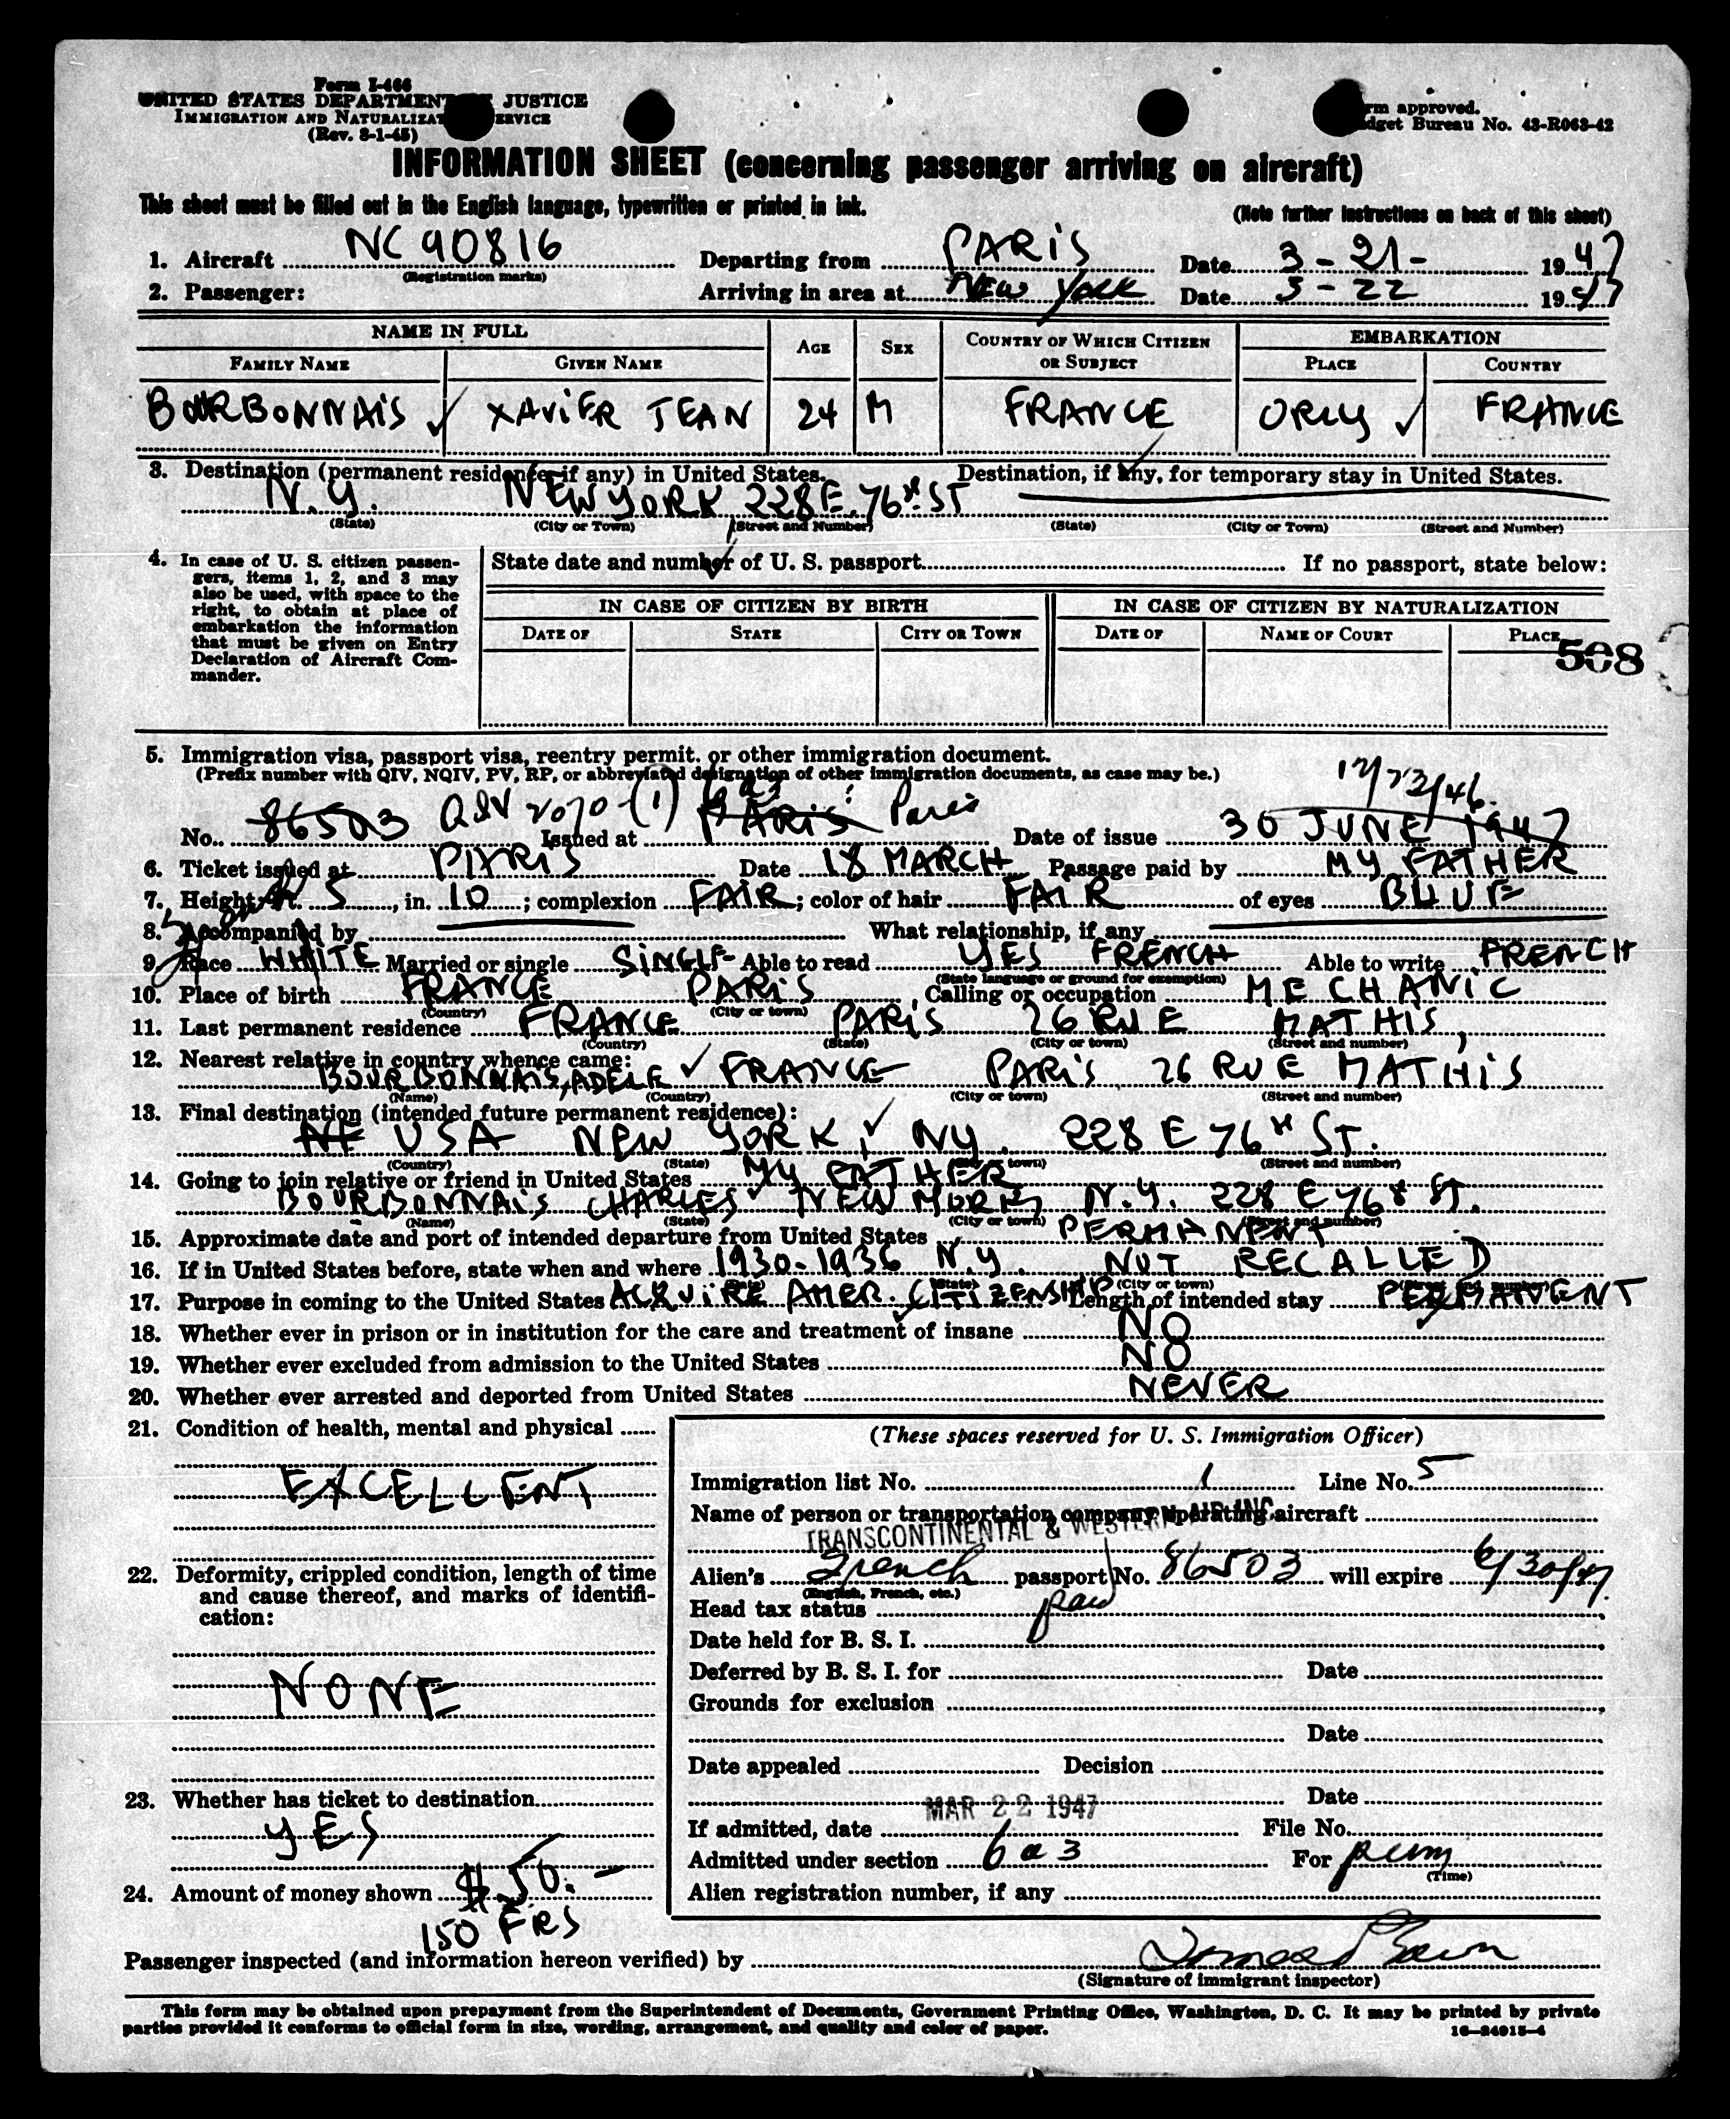 Form I-466
UNITED STATES DEPARTMENT JUSTICE
IMMIGRATION AND NATURALIZAT ERVICE
(Rev. 8-1-45)
rm approved.
dget Bureau No. 43-R063-42
INFORMATION SHEET (concerning passenger arriving on aircraft)
This sheet must be filled out in the English language, typewritten or printed in ink.
(Note further instructions on back of this sheet)
1. Aircraft NC 90816 Departing from PARIS Date 3-21- 1947
(Registration marks)
2. Passenger: Arriving in area at New York Date 3-22 1947
NAME IN FULL AGE SEX COUNTRY OF WHICH CITIZEN OR SUBJECT EMBARKATION
FAMILY NAME GIVEN NAME PLACE COUNTRY
BOURBONNAIS XAVIER JEAN 24 M FRANCE ORLY FRANCE
3. Destination (permanent residence if any) in United States. Destination, if any, for temporary stay in United States.
N.Y. NEW YORK 228 E. 76th ST
(State) (City or Town) (Street and Number) (State) (City or Town) (Street and Number)
4. In case of U. S. citizen passen-
gers, items 1, 2, and 3 may
also be used, with space to the
right, to obtain at place of
embarkation the information
that must be given on Entry
Declaration of Aircraft Com-
mander.
State date and number of U. S. passport If no passport, state below:
IN CASE OF CITIZEN BY BIRTH IN CASE OF CITIZEN BY NATURALIZATION
DATE OF STATE CITY OR TOWN DATE OF NAME OF COURT PLACE
508
5. Immigration visa, passport visa, reentry permit, or other immigration document.
(Prefix number with QIV, NQIV, PV, RP, or abbreviated designation of other immigration documents, as case may be.)
12/23/46.
No. 86503 QIV 2070 (1) 6a3 Issued at PARIS Paris Date of issue 30 JUNE 1947
6. Ticket issued at PARIS Date 18 MARCH Passage paid by MY FATHER
7. Height, ft. 5, in. 10; complexion FAIR; color of hair FAIR of eyes BLUE
8. Accompanied by What relationship, if any
9. Race WHITE Married or single SINGLE Able to read YES FRENCH Able to write FRENCH
(State language or ground for exemption)
10. Place of birth FRANCE PARIS, Calling or occupation MECHANIC
(Country) (City or town)
11. Last permanent residence FRANCE PARIS 26 RUE MATHIS,
(Country) (State) (City or town) (Street and number)
12. Nearest relative in country whence came:
BOURBONNAIS, ADELE FRANCE PARIS 26 RUE MATHIS
(Name) (Country) (City or town) (Street and number)
13. Final destination (intended future permanent residence):
USA NEW YORK, NY. 228 E 76th ST.
(Country) (State) town) (Street and number)
14. Going to join relative or friend in United States MY FATHER
BOURBONNAIS CHARLES NEW YORK N.Y. 228 E 76th ST.
(Name) (State) (City or town) (Street and number)
15. Approximate date and port of intended departure from United States PERMANENT
16. If in United States before, state when and where 1930-1936 N.Y. NOT RECALLED
(State) (City or town) (Street and number)
17. Purpose in coming to the United States ACQUIRE AMER. CITIZENSHIP Length of intended stay PERMANENT
18. Whether ever in prison or in institution for the care and treatment of insane NO
19. Whether ever excluded from admission to the United States NO
20. Whether ever arrested and deported from United States NEVER
21. Condition of health, mental and physical
EXCELLENT
22. Deformity, crippled condition, length of time
and cause thereof, and marks of identifi-
cation:
NONE
23. Whether has ticket to destination
YES
24. Amount of money shown $50.-
150 FRS
(These spaces reserved for U. S. Immigration Officer)
Immigration list No. 1 Line No. 5
Name of person or transportation company operating aircraft
TRANSCONTINENTAL & WESTERN AIR INC.
Alien's French passport No. 86503 will expire 6/30/47.
(English, French, etc.)
Head tax status paid
Date held for B. S. I.
Deferred by B. S. I. for Date
Grounds for exclusion
Date
Date appealed Decision
Date
MAR 22 1947
If admitted, date File No.
Admitted under section 6a3 For perm
(Time)
Alien registration number, if any
Passenger inspected (and information hereon verified) by
(Signature of immigrant inspector)
This form may be obtained upon prepayment from the Superintendent of Documents, Government Printing Office, Washington, D. C. It may be printed by private
parties provided it conforms to official form in size, wording, arrangement, and quality and color of paper.
16-24915-4